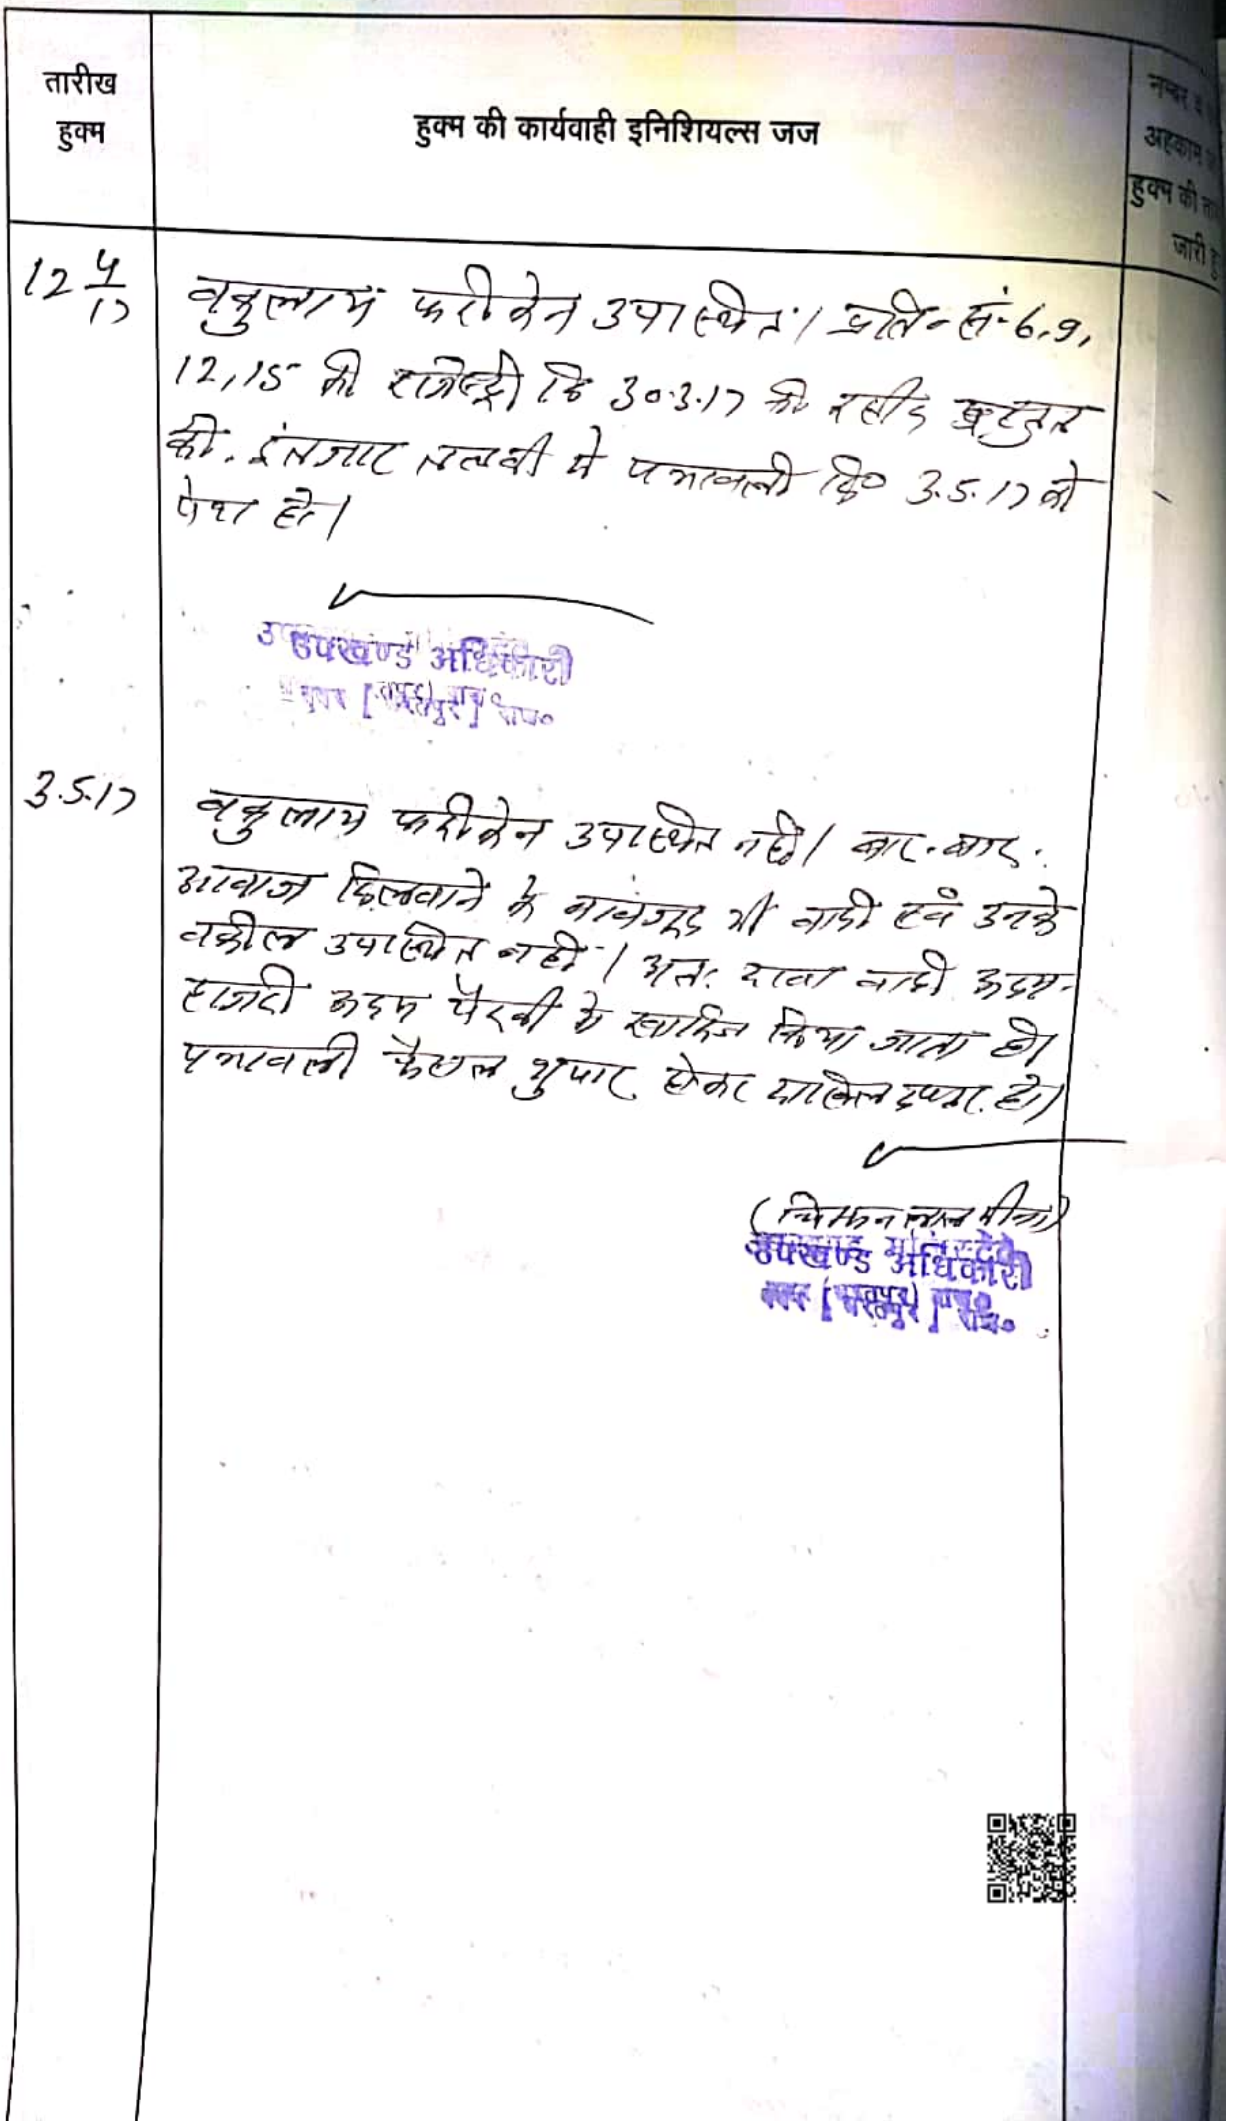 तारीख
हुक्म
हुक्म की कार्यवाही इनिशियल्स जज
नम्बर
अहकाम
हुक्म की
जारी
12 4/17
वकुलाय फरीकेन उपस्थित। प्रति- सं- 6, 9,
12, 15 की रजिस्ट्री दि 30.3.17 की रसीद प्रस्तुत
की. इंतजार तलवी मे पत्रावली दि० 3.5.17 को
पेश हो।
उपखण्ड अधिकारी
3.5.17
वकुलाय फरीकेन उपस्थित नही। बार-बार
आवाज दिलवाने के बावजूद भी वादी एवं उनके
वकील उपस्थित नही। अतः दावा वादी अदम-
हाजरी अदम पैरवी मे खारिज किया जाता है।
पत्रावली फैसल शुमार होकर दाखिल दफ्तर हो।
(चिमन लाल मीना)
उपखण्ड अधिकारी